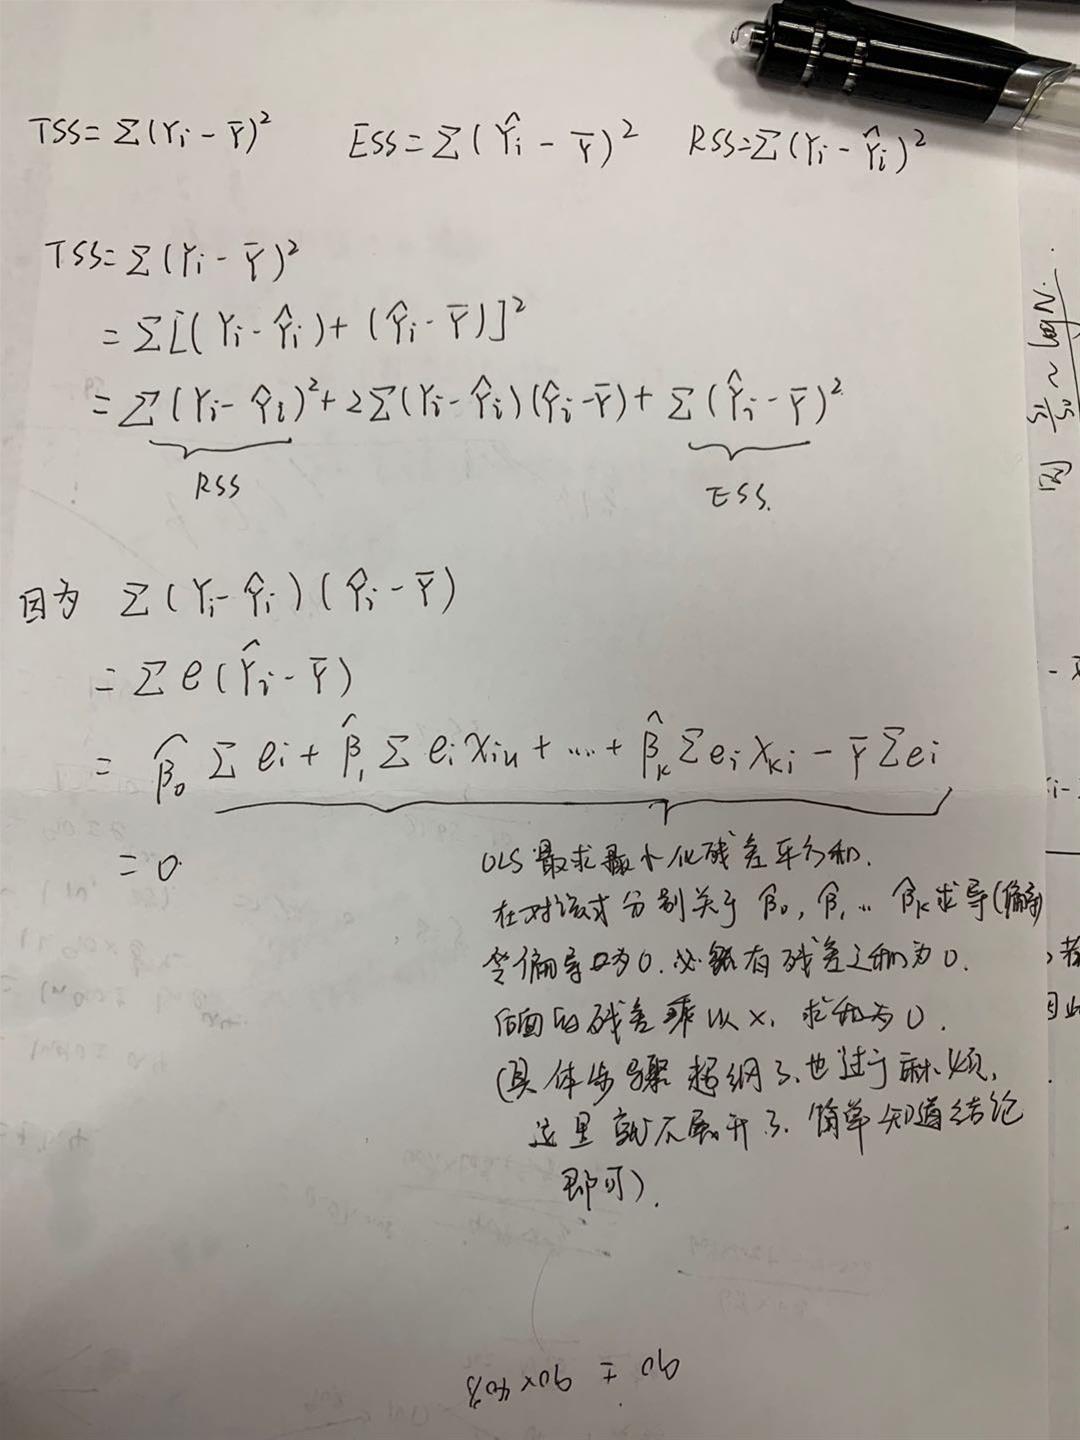 TSS=Σ(Yi-Ȳ)² ESS=Σ(Ŷi-Ȳ)² RSS=Σ(Yi-Ŷi)²
TSS=Σ(Yi-Ȳ)²
=Σ[(Yi-Ŷi)+(Ŷi-Ȳ)]²
=Σ(Yi-Ŷi)²+2Σ(Yi-Ŷi)(Ŷi-Ȳ)+Σ(Ŷi-Ȳ)²
RSS ESS.
因为 Σ(Yi-Ŷi)(Ŷi-Ȳ)
=Σe(Ŷi-Ȳ)
=β̂₀Σei+β̂₁Σei Xiu+…+β̂kΣei Xki-ȲΣei
=0
OLS 最求最小化残差平方和.
在对该式分别关于β̂₀,β̂₁…β̂k求导(偏导)
令偏导为0.必然有残差之和为0.
后面的残差乘以X,求和为0.
(具体步骤超纲了,也过于麻烦,
这里就不展开了.简单知道结论
即可).